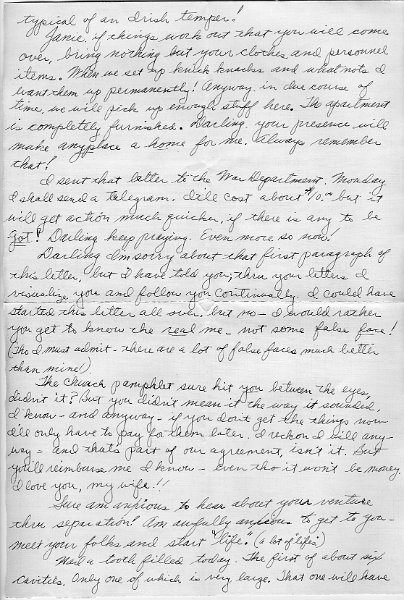 typical of an Irish temper!
Janie if things work out that you will come
over, bring nothing but your clothes and personnel
items. When we set up knick knacks and what nots I
want them up permanently! Anyway in due course of
time, we will pick up enough stuff here. The apartment
is completely furnished. Darling, your presence will
make anyplace a home for me. Always remember
that!
I sent that letter to the War Department. Monday
I shall send a telegram. I'll cost about $10.00 but it
will get action much quicker, if there is any to be
got! Darling keep praying. Even more so now!
Darling I'm sorry about that first paragraph of
this letter, but I have told you, thru your letters I
visualize you and follow you continually. I could have
started this letter all over, but no - I would rather
you get to know the real me - not some false face!
(tho I must admit - there are a lot of false faces much better
than mine!)
The church pamphlet sure hit you between the eyes,
didn't it? But you didn't mean it the way it sounded,
I know - and anyway - if you don't get the things now
I'll only have to pay for them later. I reckon I will any-
way - and that's part of our agreement, isn't it. But
you'll reimburse me I know - even tho it won't be money.
I love you, my wife!!
Sure am anxious to hear about your venture
thru separation! Am awfully anxious to get to you -
meet your folks and start "life". (a lot of "lifes")
Had a tooth filled today. The first of about six
cavities. Only one of which is very large. That one will have